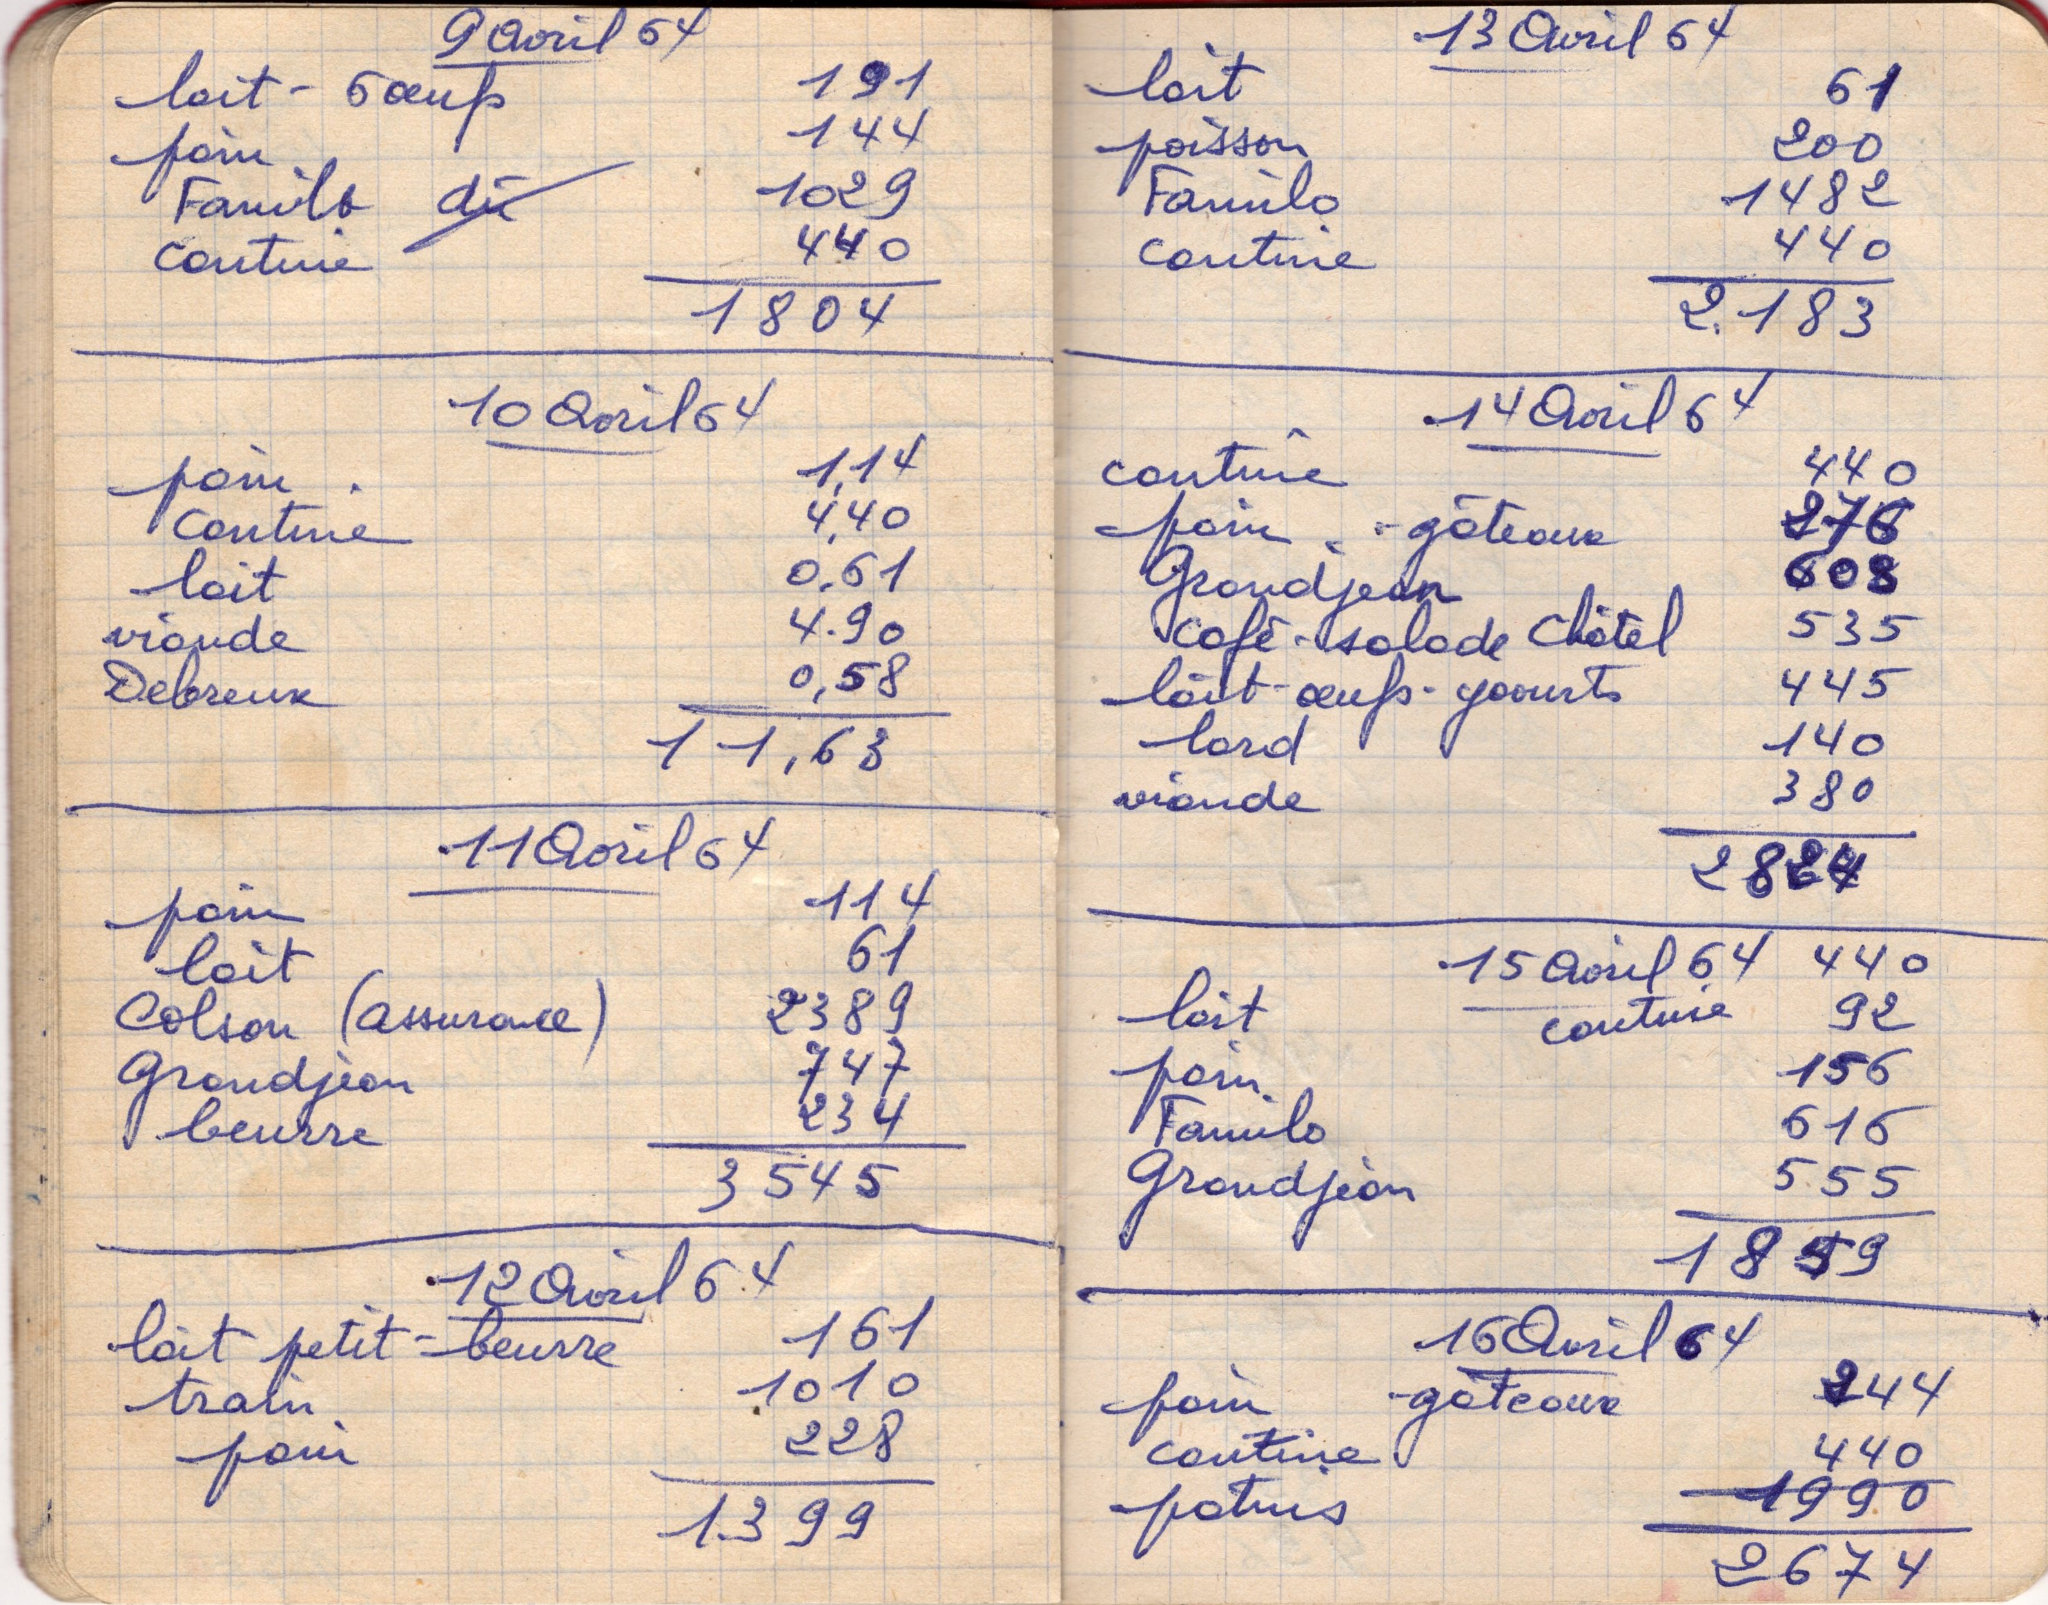 9 Avril 64
lait - 6 œufs 191
pain 144
Familo dû 1029
cantine 440
1804
10 Avril 64
pain 1,14
cantine 4,40
lait 0.61
viande 4.90
Debreux 0,58
11,63
11 Avril 64
pain 114
lait 61
Colson (assurance) 2389
Grandjean 747
beurre 234
3545
12 Avril 64
lait petit-beurre 161
train 1010
pain 228
1399
13 Avril 64
lait 61
poisson 200
Familo 1482
cantine 440
2.183
14 Avril 64
cantine 440
pain - gâteaux 276
Grandjean 608
café - salade Châtel 535
lait - œufs - yaourts 445
lard 140
viande 380
2824
15 Avril 64 440
cantine
lait 92
pain 156
Familo 616
Grandjean 555
1859
16 Avril 64
pain - gâteaux 244
cantine 440
patins 1990
2674